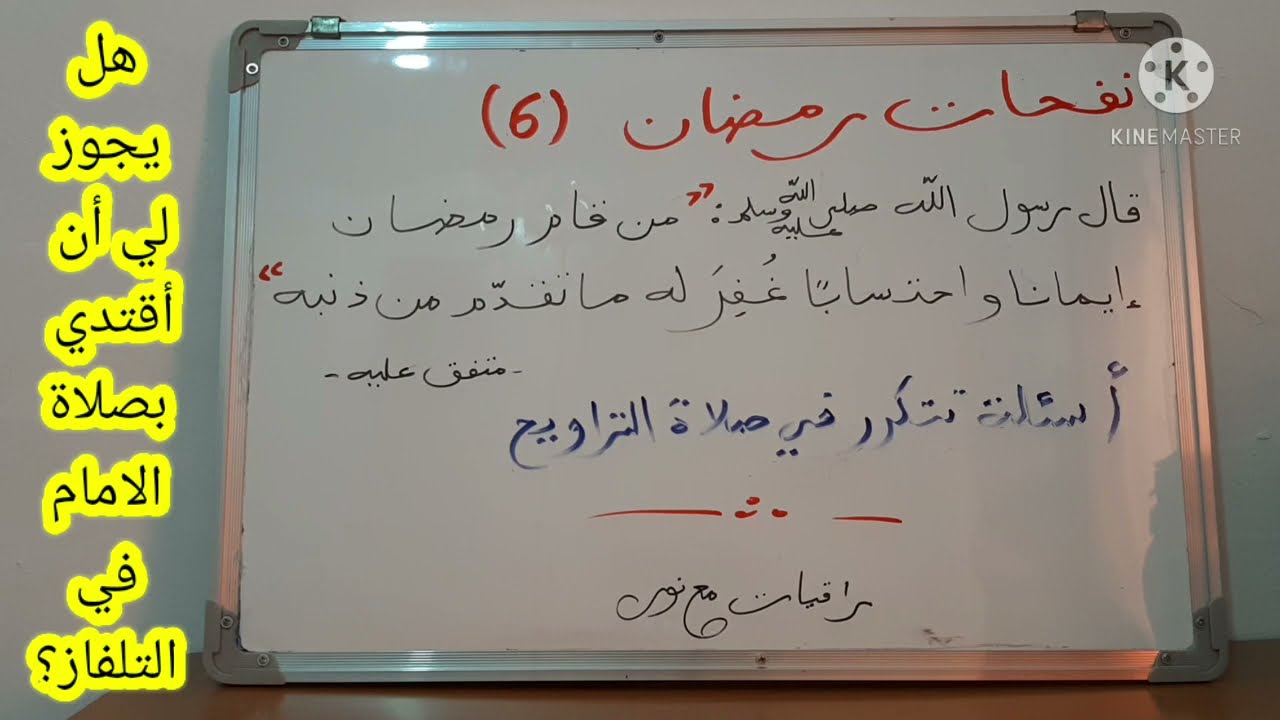 نفحات رمضان (6)
قال رسول الله صلى الله عليه وسلم: "من قام رمضان
إيمانا و احتسابًا غُفِرَ له ما تقدّم من ذنبه"
- متفق عليه -
أسئلة تتكرر في صلاة التراويح
راقيات مع نور
هل
يجوز
لي أن
أقتدي
بصلاة
الامام
في
التلفاز؟
KINEMASTER